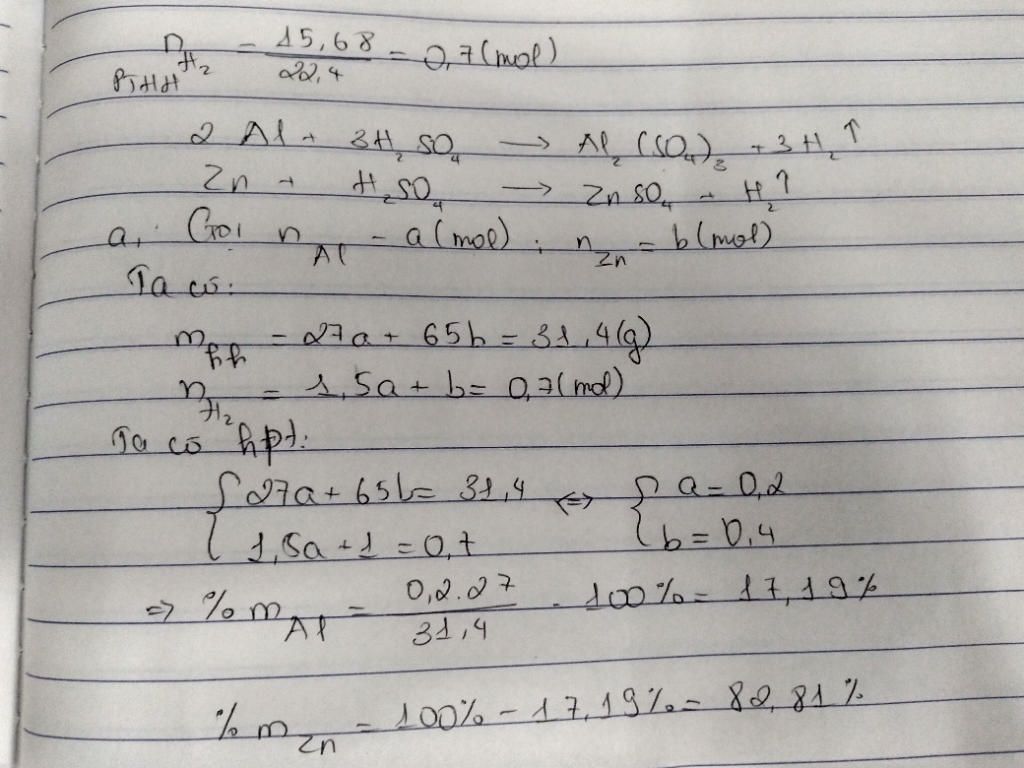 n_{H₂} = 15,68/22,4 = 0,7 (mol)
PTHH
2 Al + 3H₂SO₄ → Al₂(SO₄)₃ + 3H₂↑
Zn + H₂SO₄ → ZnSO₄ + H₂↑
a, Gọi n_{Al} = a (mol) ; n_{Zn} = b (mol)
Ta có:
m_{hh} = 27a + 65b = 31,4 (g)
n_{H₂} = 1,5a + b = 0,7 (mol)
Ta có hpt:
{ 27a + 65b = 31,4 <=> { a = 0,2
{ 1,5a + 1 = 0,7 { b = 0,4
=> % m_{Al} = 0,2.27/31,4 . 100% = 17,19%
% m_{Zn} = 100% - 17,19% = 82,81%